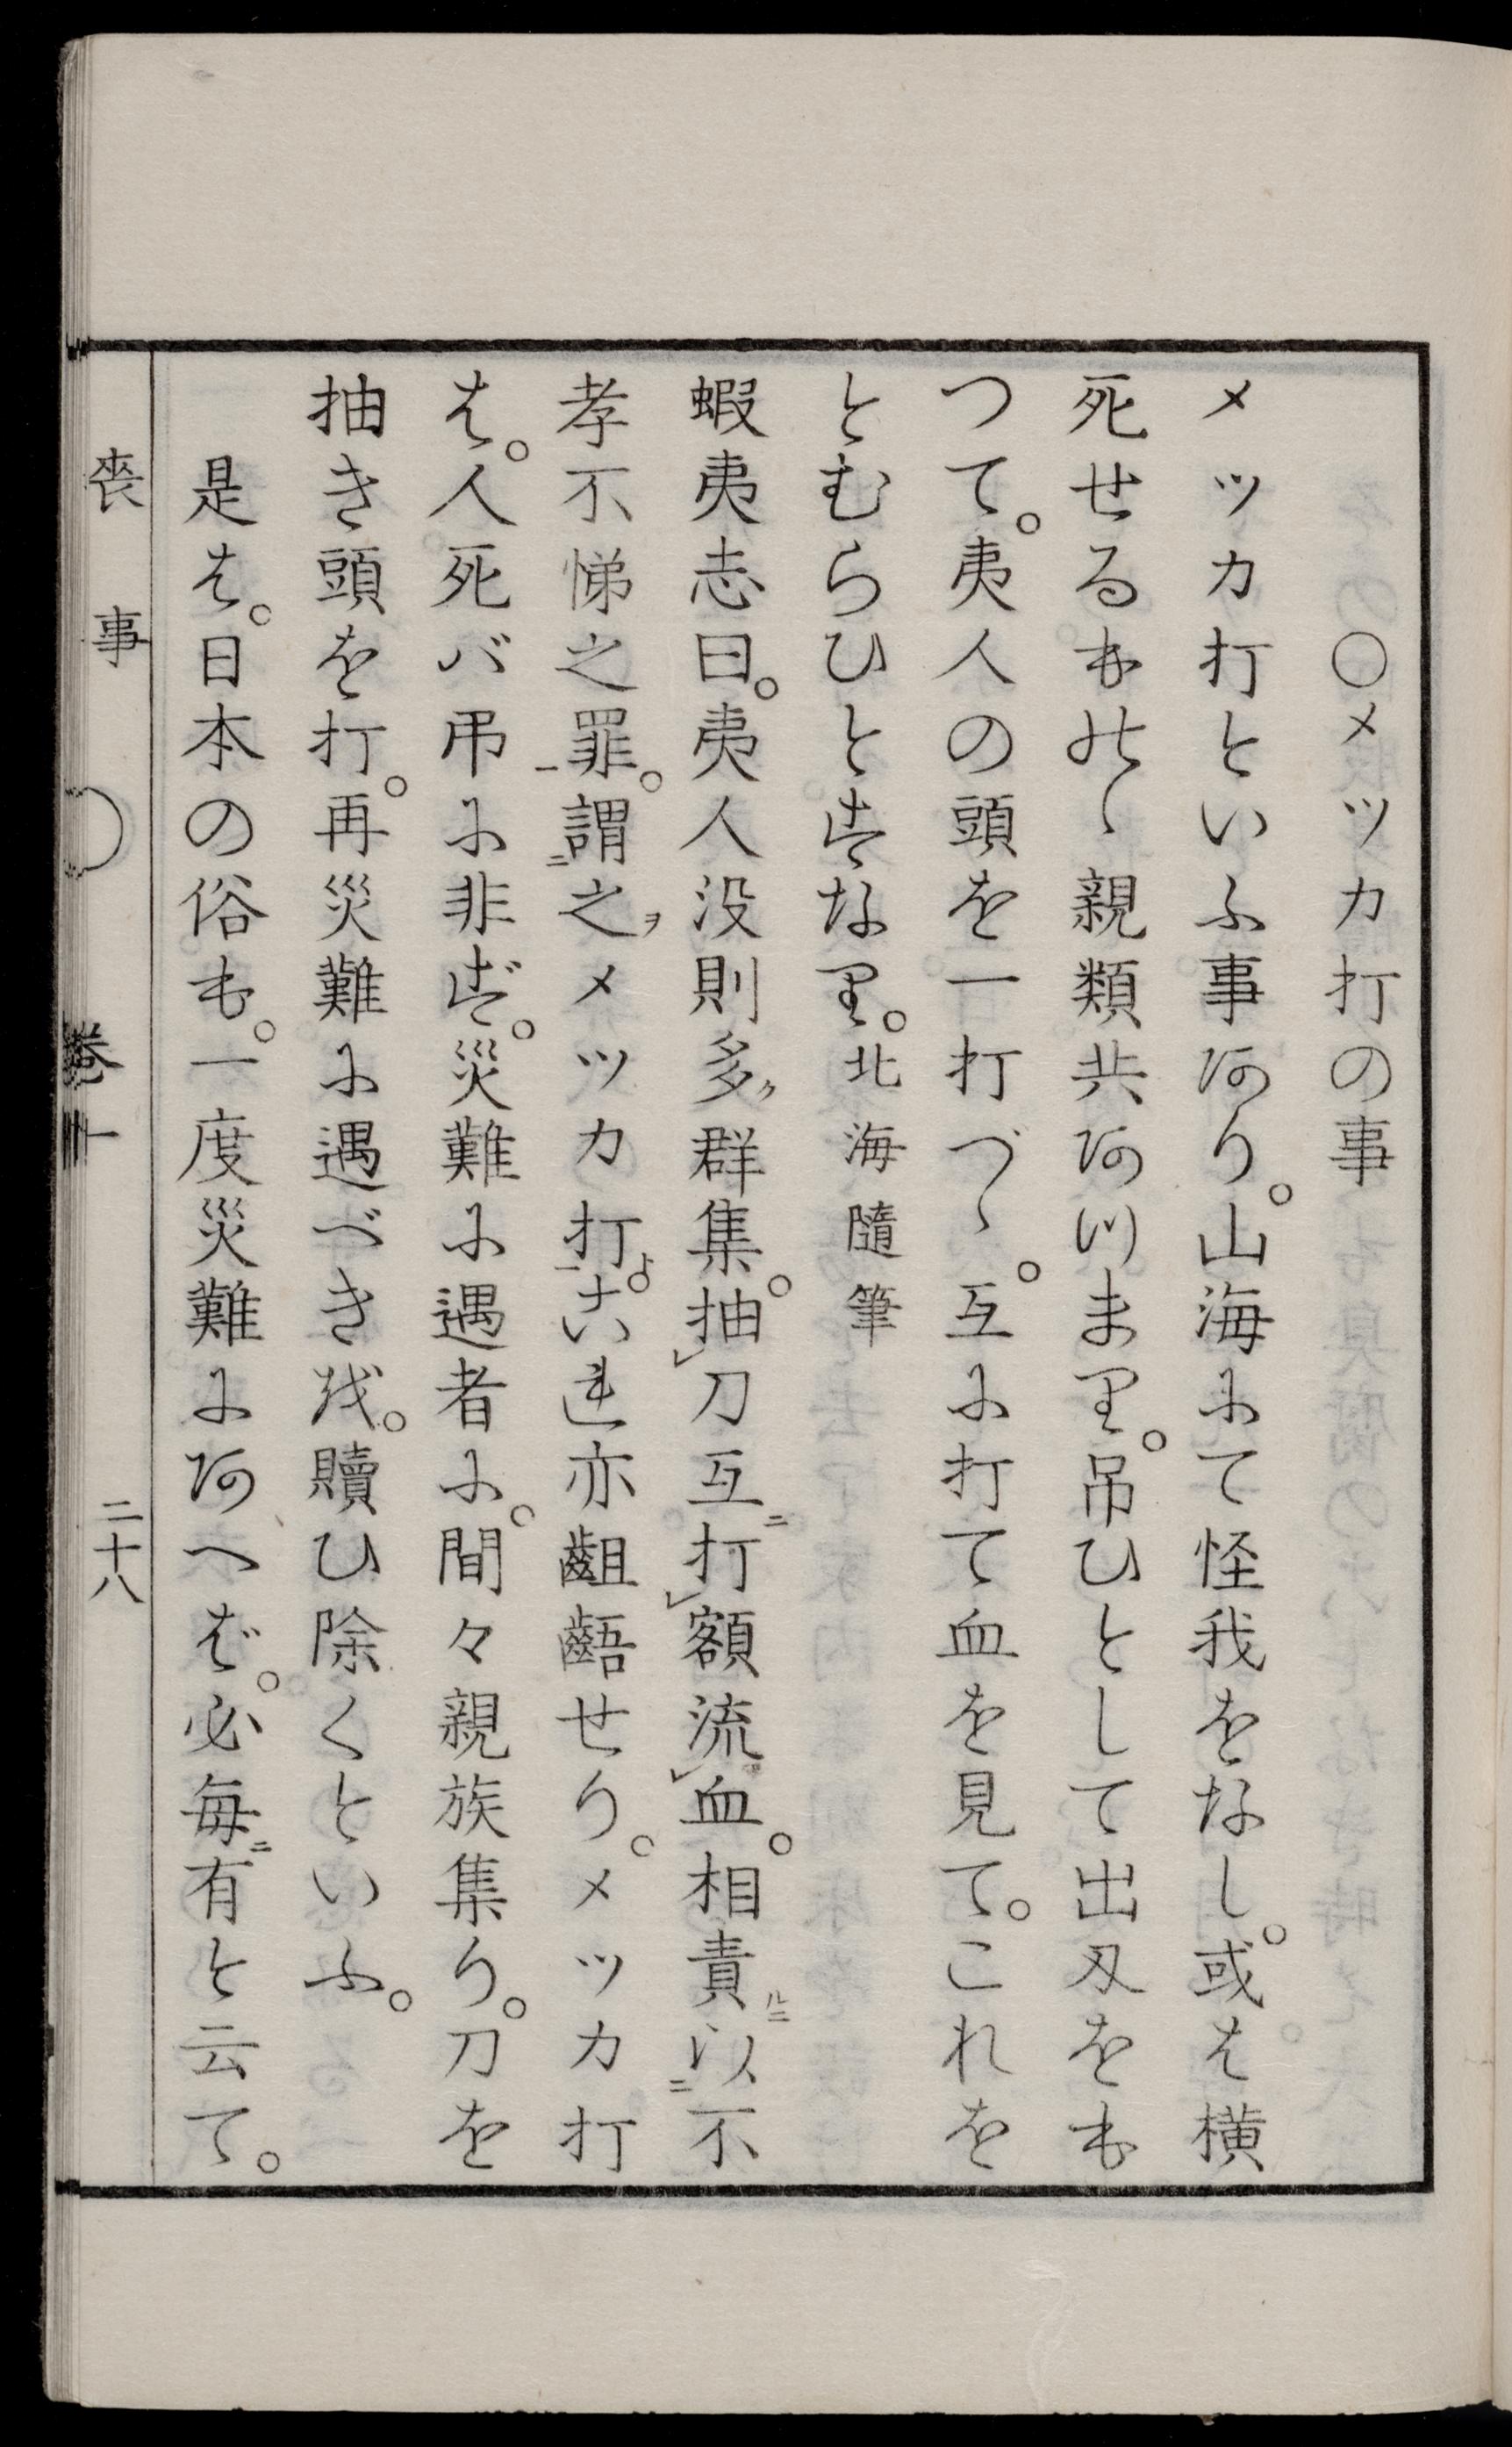 ○メツカ打の事
メツカ打といふ事あり。山海にて怪我をなし。或は横
死せるものゝ親類共あつまり。吊ひとして出刄をも
つて。夷人の頭を一打づゝ。互に打て血を見て。これを
とむらひとすなり。北海隨筆
蝦夷志曰。夷人没則多ク群集。抽レ刀互ニ打レ額流レ血。相責ルニ以ニ不
孝不悌之罪一。謂ニ之ヲメツカ打一よ。これ亦齟齬せり。メツカ打
は。人死バ弔に非ず。災難に遇者に。間々親族集り。刀を
抽き頭を打。再災難に遇べきを。贖ひ除くといふ。
是は。日本の俗も。一度災難にあへば。必毎ニ有と云て。
喪事 ○ 卷十一 二十八